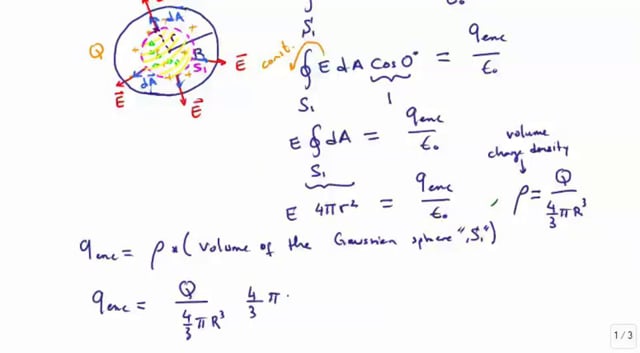 ∮ E dA Cos 0° = q_enc / ε₀
S₁
const.
1
Q
dA
r
R
S₁
E⃗
dA
E⃗
E⃗
E ∮ dA = q_enc / ε₀
S₁
volume
charge density
E 4πr² = q_enc / ε₀ , ρ = Q / (4/3 π R³)
q_enc = ρ * ( volume of the Gaussian sphere "S₁")
q_enc = Q / (4/3 π R³) 4/3 π
1 / 3